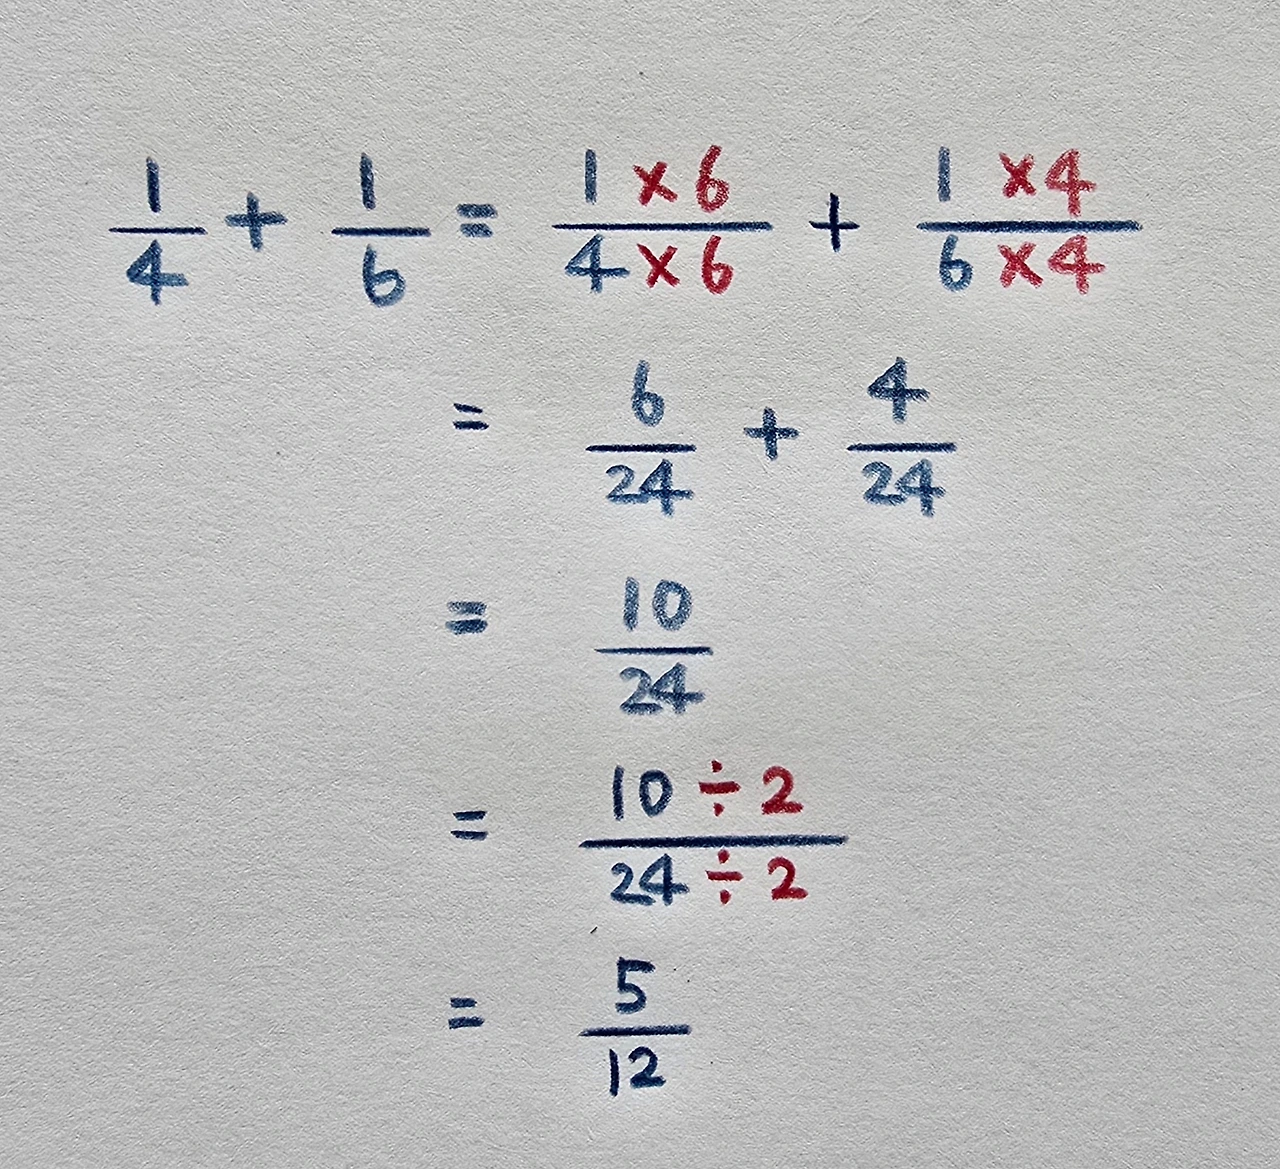 1/4 + 1/6 = (1 × 6)/(4 × 6) + (1 × 4)/(6 × 4)
= 6/24 + 4/24
= 10/24
= (10 ÷ 2)/(24 ÷ 2)
= 5/12